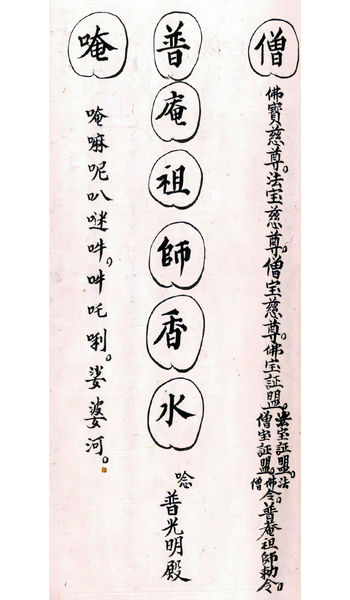 僧
佛寶慈尊。法宝慈尊。僧宝慈尊。佛宝証盟。
法宝証盟。法
僧宝証盟。佛
僧
令。普菴祖師勅令。
普庵祖師香水
唸
普光明殿
唵
唵嘛呢叭咪吽。吽吒唎。娑婆河。